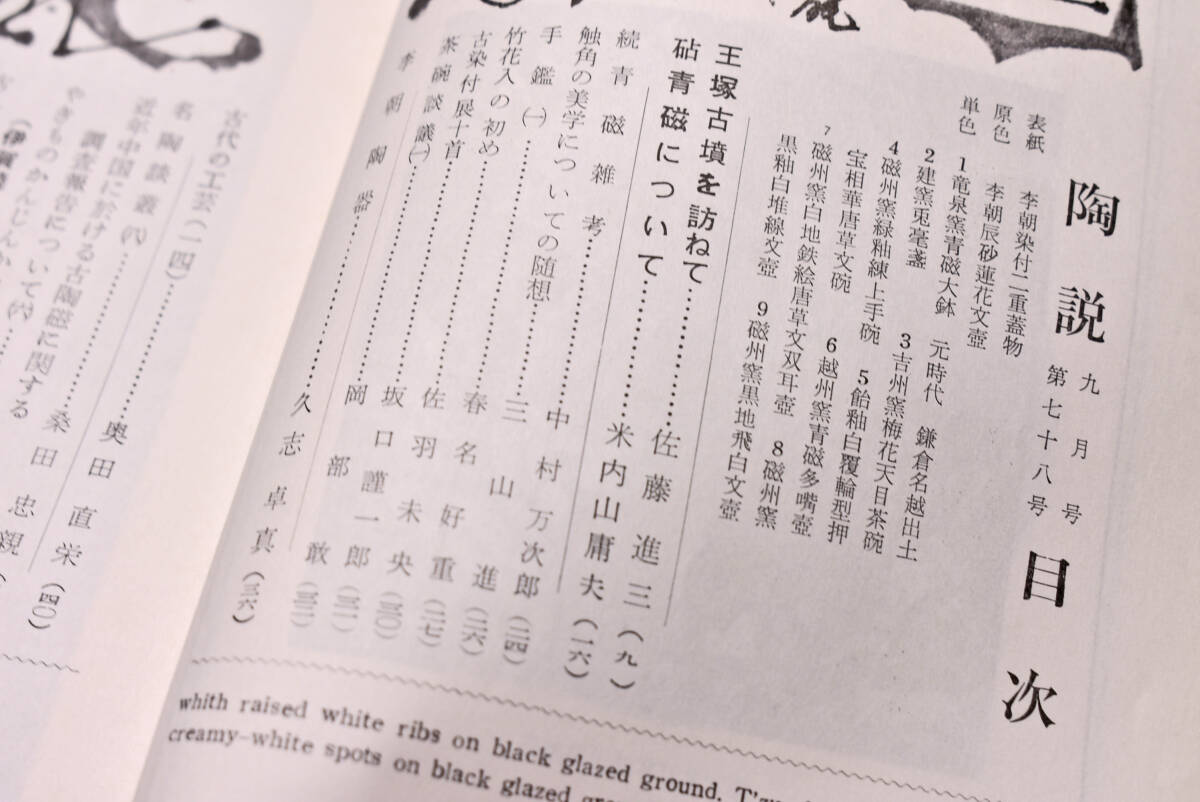 陶説 九月号 第七十八号 目次
表紙 李朝染付二重蓋物
原色 李朝辰砂蓮花文壺
単色 1竜泉窯青磁大鉢 元時代 鎌倉名越出土
2建窯兎毫盞 3吉州窯梅花天目茶碗
4磁州窯緑釉練上手碗 5飴釉白覆輪型押
宝相華唐草文碗 6越州窯青磁多嘴壺
7磁州窯白地鉄絵唐草文双耳壺 8磁州窯
黒釉白堆線文壺 9磁州窯黒地飛白文壺
王塚古墳を訪ねて……佐藤進三(九)
砧青磁について……米内山庸夫(一六)
続青磁雑考……中村万次郎(二四)
触角の美学についての随想……三山進(二六)
手鑑(一)……春名好重(二七)
竹花入の初め……佐羽未央(三〇)
古染付展十首……坂口謹一郎(三一)
茶碗談議(一)……岡部敢(三二)
李朝陶器……久志卓真(三六)
古代の工芸(一四)……奥田直栄(四〇)
名陶談叢(八)……桑田忠親
近年中国に於ける古陶磁に関する
調査報告について(六)
やきものかんじんか
whith raised white ribs on black glazed ground. T'zu
creamy-white spots on black glazed